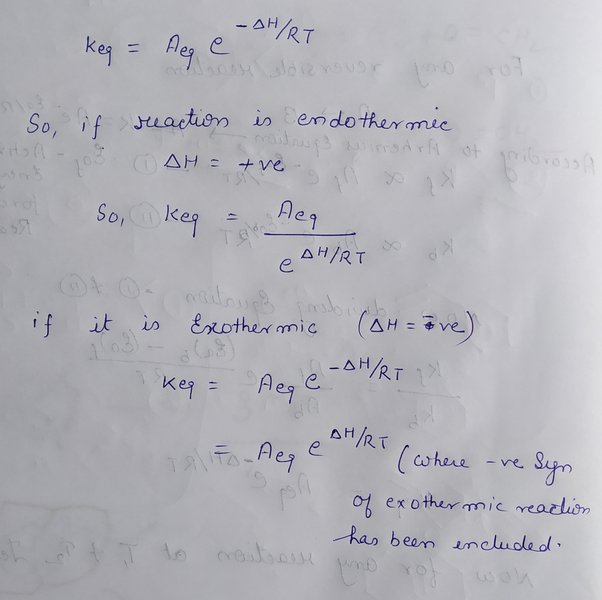 Keq = Aeq e^-ΔH/RT
So, if reaction is endothermic
ΔH = +ve
So, Keq = Aeq / e^ΔH/RT
if it is Exothermic (ΔH = -ve)
Keq = Aeq e^-ΔH/RT
= Aeq e^ΔH/RT (where -ve Syn
of exothermic reaction
has been included.